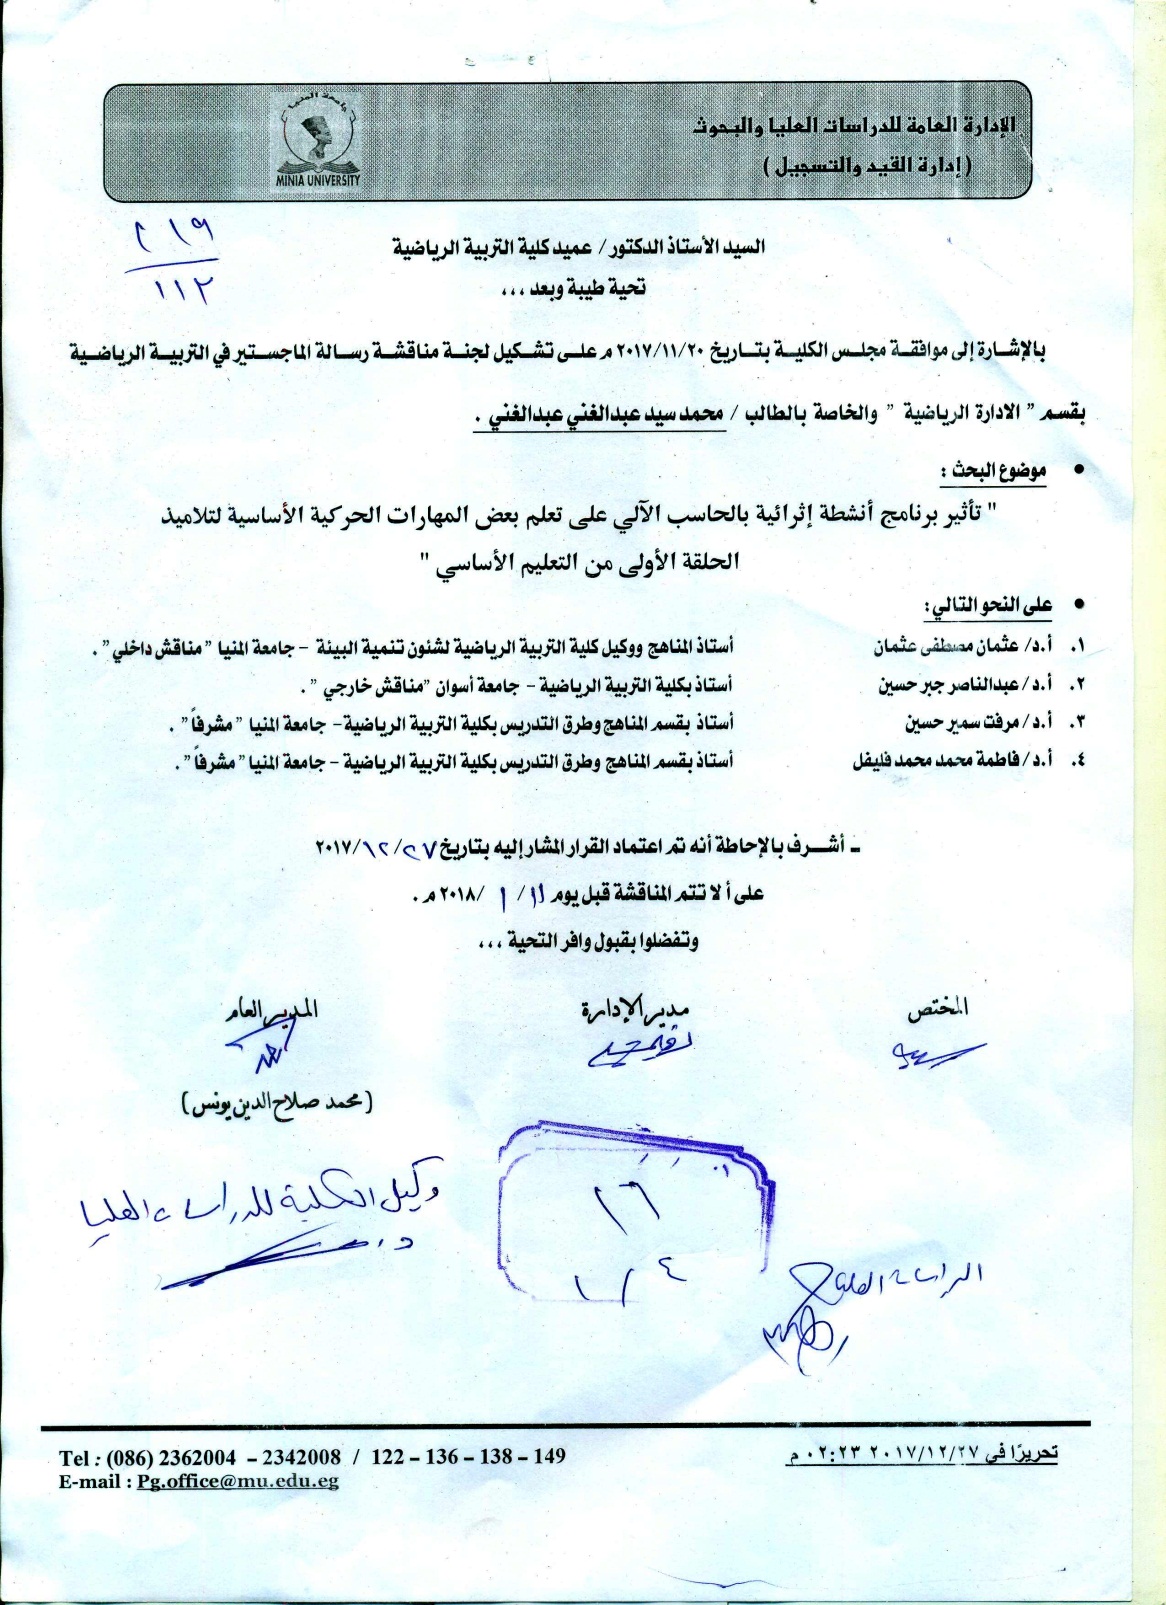 جامعة المنيا
MINIA UNIVERSITY
الإدارة العامة للدراسات العليا والبحوث
( إدارة القيد والتسجيل )
٢١٩
١١٢
السيد الأستاذ الدكتور / عميد كلية التربية الرياضية
تحية طيبة وبعد ،،،
بالإشارة إلى موافقة مجلس الكلية بتاريخ ٢٠١٧/١١/٢٠ م على تشكيل لجنة مناقشة رسالة الماجستير في التربية الرياضية
بقسم " الادارة الرياضية " والخاصة بالطالب / محمد سيد عبدالغني عبدالغني .
• موضوع البحث :
" تأثير برنامج أنشطة إثرائية بالحاسب الآلي على تعلم بعض المهارات الحركية الأساسية لتلاميذ
الحلقة الأولى من التعليم الأساسي "
• على النحو التالي :
١. أ.د/ عثمان مصطفى عثمان أستاذ المناهج ووكيل كلية التربية الرياضية لشئون تنمية البيئة – جامعة المنيا "مناقش داخلي" .
٢. أ.د/ عبدالناصر جبر حسين أستاذ بكلية التربية الرياضية – جامعة أسوان "مناقش خارجي" .
٣. أ.د/ مرفت سمير حسين أستاذ بقسم المناهج وطرق التدريس بكلية التربية الرياضية – جامعة المنيا "مشرفاً" .
٤. أ.د/ فاطمة محمد محمد فليفل أستاذ بقسم المناهج وطرق التدريس بكلية التربية الرياضية – جامعة المنيا "مشرفاً" .
ـ أشرف بالإحاطة أنه تم اعتماد القرار المشار إليه بتاريخ ٢٠١٧/١٢/٢٧
على ألا تتم المناقشة قبل يوم ١١/ ١ /٢٠١٨ م .
وتفضلوا بقبول وافر التحية ،،،
المختص مدير الإدارة المدير العام
( محمد صلاح الدين يونس )
وكيل الكلية للدراسات العليا
د.
٢٦
١/٤
الدراسات العليا
Tel : (086) 2362004 – 2342008 / 122 – 136 – 138 – 149
E-mail : Pg.office@mu.edu.eg
تحريرًا في ٢٠١٧/١٢/٢٧ ٠٢:٢٣ م